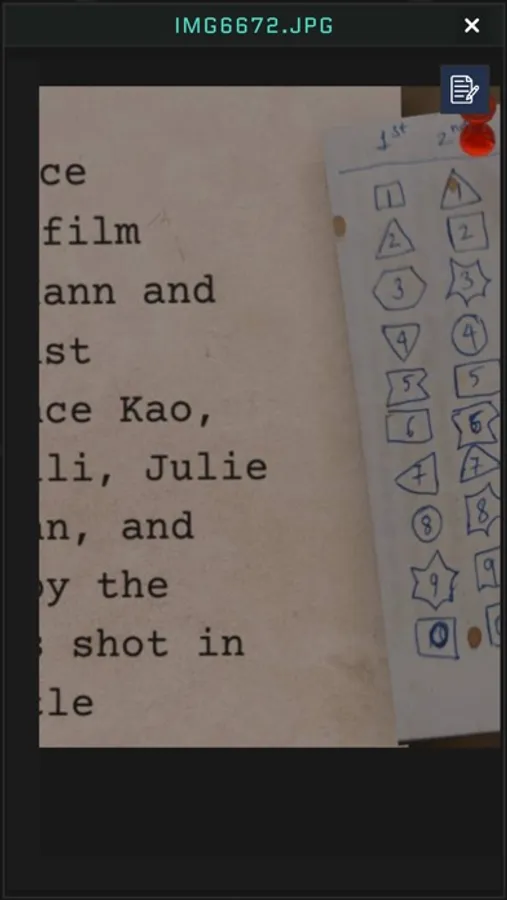 IMG6672.JPG
ce
film
ann and
st
ce Kao,
li, Julie
n, and
y the
shot in
le
1st 2n
1 1
2 2
3 3
4 4
5 5
6 6
7 7
8 8
9 9
0